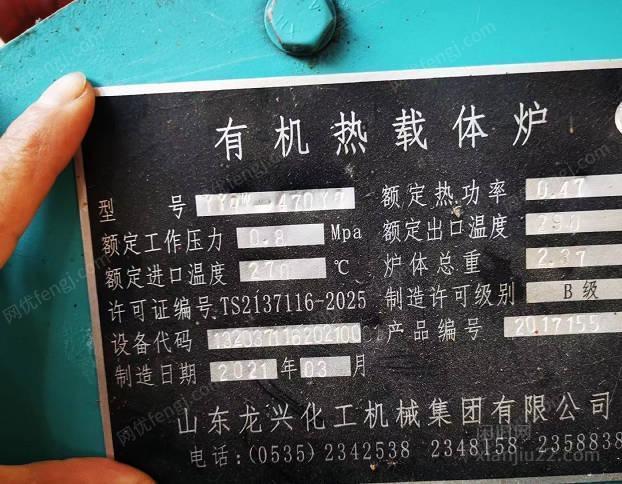 有机热载体炉
型号 YYQW-470YQ 额定热功率 0.47
额定工作压力 0.8 Mpa 额定出口温度
额定进口温度 270 ℃ 炉体总重 2.37
许可证编号 TS2137116-2025 制造许可级别 B级
设备代码 产品编号 2017155
制造日期 2021 年 03 月
山东龙兴化工机械集团有限公司
电话:(0535) 2342538 2348158 2358838